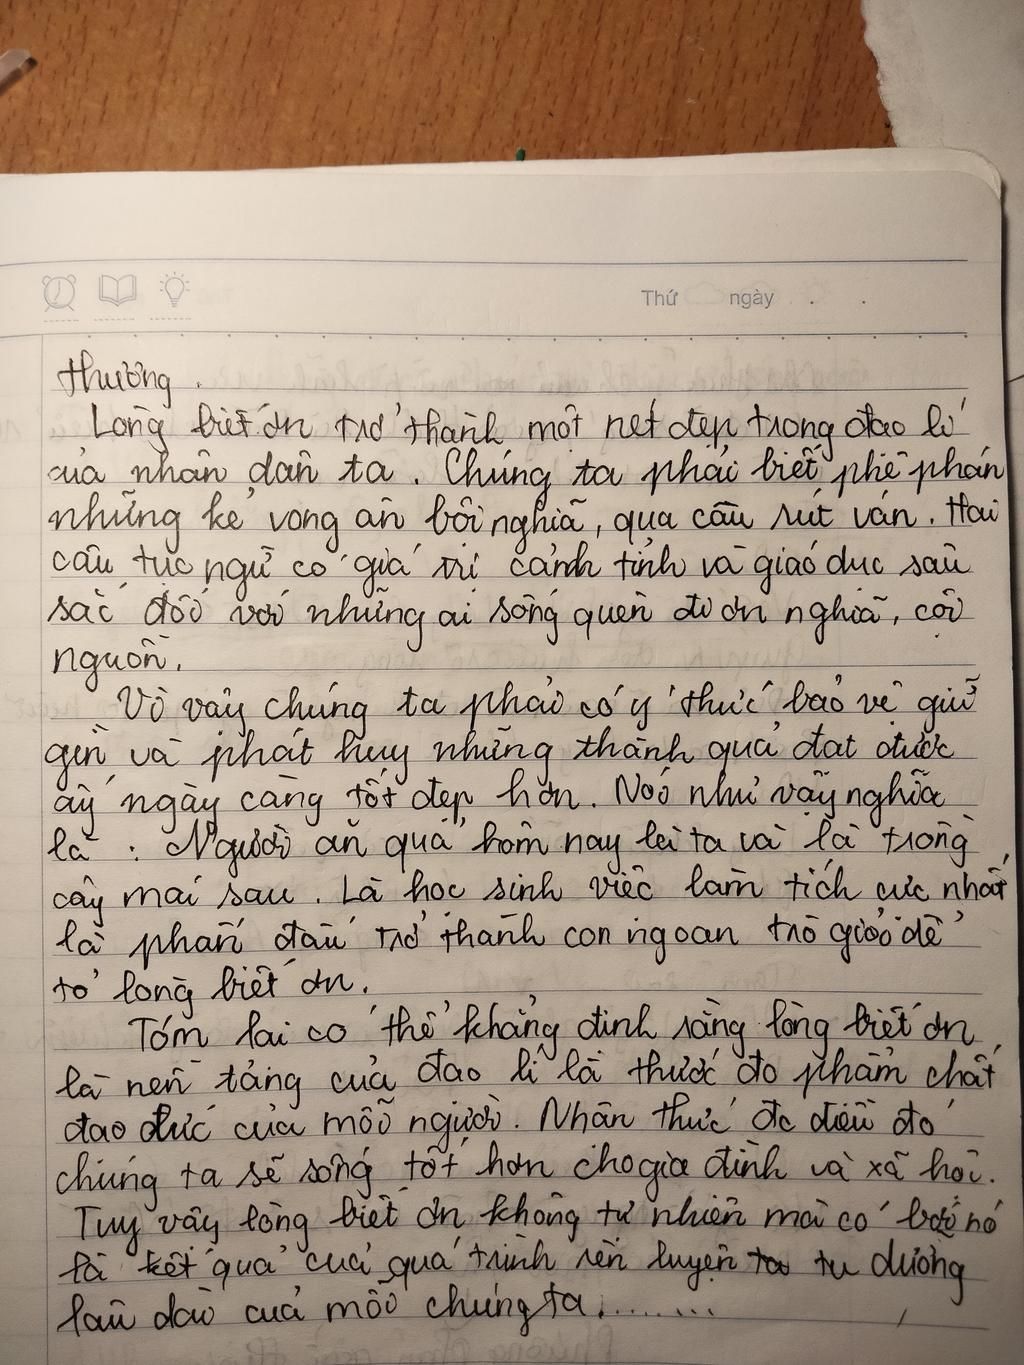 Thứ ngày . .
thường.
Lòng biết ơn trở thành một nét đẹp trong đạo lí
của nhân dân ta. Chúng ta phải biết phê phán
những kẻ vong ân bội nghĩa, qua cầu rút ván. Hai
câu tục ngữ có giá trị cảnh tỉnh và giáo dục sâu
sắc đối với những ai sống quên đi ơn nghĩa, cội
nguồn.
Vì vậy chúng ta phải có ý thức bảo vệ giữ
gìn và phát huy những thành quả đạt được
ấy ngày càng tốt đẹp hơn. Nói như vậy nghĩa
là : Người ăn quả hôm nay là ta và là trồng
cây mai sau. Là học sinh việc làm tích cực nhất
là phấn đấu trở thành con ngoan trò giỏi để
tỏ lòng biết ơn.
Tóm lại có thể khẳng định rằng lòng biết ơn
là nền tảng của đạo lí là thước đo phẩm chất
đạo đức của mỗi người. Nhận thức đc điều đó
chúng ta sẽ sống tốt hơn cho gia đình và xã hội.
Tuy vậy lòng biết ơn không tự nhiên mà có bởi nó
là kết quả của quá trình rèn luyện tu dưỡng
lâu dài của mỗi chúng ta........